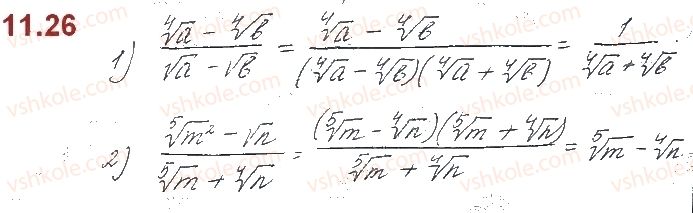 11.26
1) \frac{\sqrt[4]{a} - \sqrt[4]{b}}{\sqrt{a} - \sqrt{b}} = \frac{\sqrt[4]{a} - \sqrt[4]{b}}{(\sqrt[4]{a} - \sqrt[4]{b})(\sqrt[4]{a} + \sqrt[4]{b})} = \frac{1}{\sqrt[4]{a} + \sqrt[4]{b}}.
2) \frac{\sqrt[5]{m^2} - \sqrt{n}}{\sqrt[5]{m} + \sqrt[4]{n}} = \frac{(\sqrt[5]{m} - \sqrt[4]{n})(\sqrt[5]{m} + \sqrt[4]{n})}{\sqrt[5]{m} + \sqrt[4]{n}} = \sqrt[5]{m} - \sqrt[4]{n}.
vshkole.com vshkole.com vshkole.com